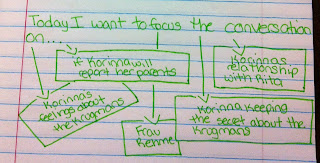 Today I want to focus the conversation
on...
if Korinna will
report her parents
Korinnas
relationship
with Rita
Korinnas
feelings about
the Krugmans
Frau
Remme
Korinna keeping
the secret about the
Krugmans